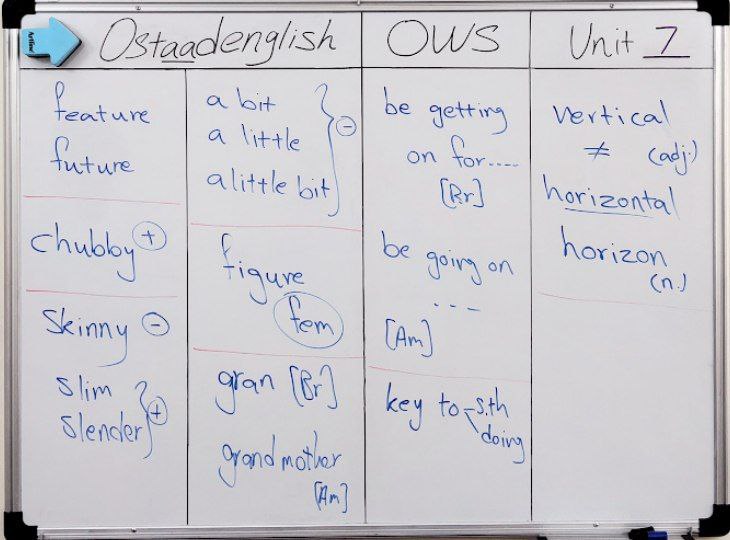 Artline
Ostaadenglish
OWS
Unit 7
feature
future
chubby +
skinny -
slim
slender +
a bit
a little
a little bit -
figure
fem
gran [Br]
grandmother
[Am]
be getting
on for....
[Br]
be going on
...
[Am]
key to s.th
doing
vertical
≠ (adj.)
horizontal
horizon
(n.)